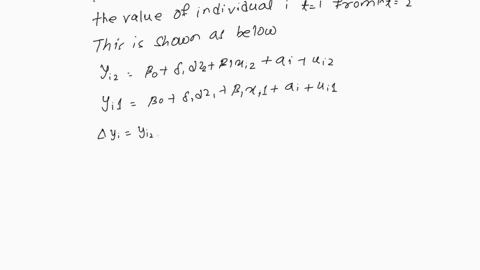 the value of individual i t=1 from t=2
This is shown as below
y_{i2} = β_0 + δ_1 d2_2 + β_1 x_{i2} + a_i + u_{i2}
y_{i1} = β_0 + δ_1 d2_1 + β_1 x_{i1} + a_i + u_{i1}
Δy_i = y_{i2}